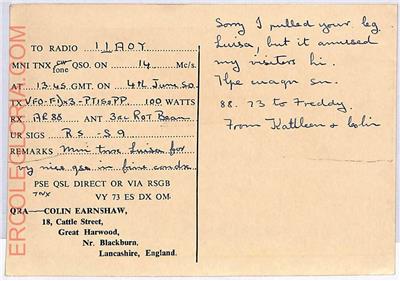 TO RADIO I1AOY
MNI TNX CW fone QSO. ON 14 Mc/s.
AT 13.45 GMT. ON 4th June 50
TX VFO-FD×3-PT15s PP 100 WATTS
RX AR88 ANT 3el ROT Beam
UR SIGS RS - S9
REMARKS Mni tnx Luisa for
my nice qso in fine condx
PSE QSL DIRECT OR VIA RSGB
TNX VY 73 ES DX OM
QRA—COLIN EARNSHAW,
18, Cattle Street,
Great Harwood,
Nr. Blackburn,
Lancashire, England.
Sorry I pulled your leg
Luisa, but it amused
my visitors hi.
Hpe cuagn sn.
88. 73 to Freddy.
From Kathleen & Colin
ERCOLEGLORIA.COM